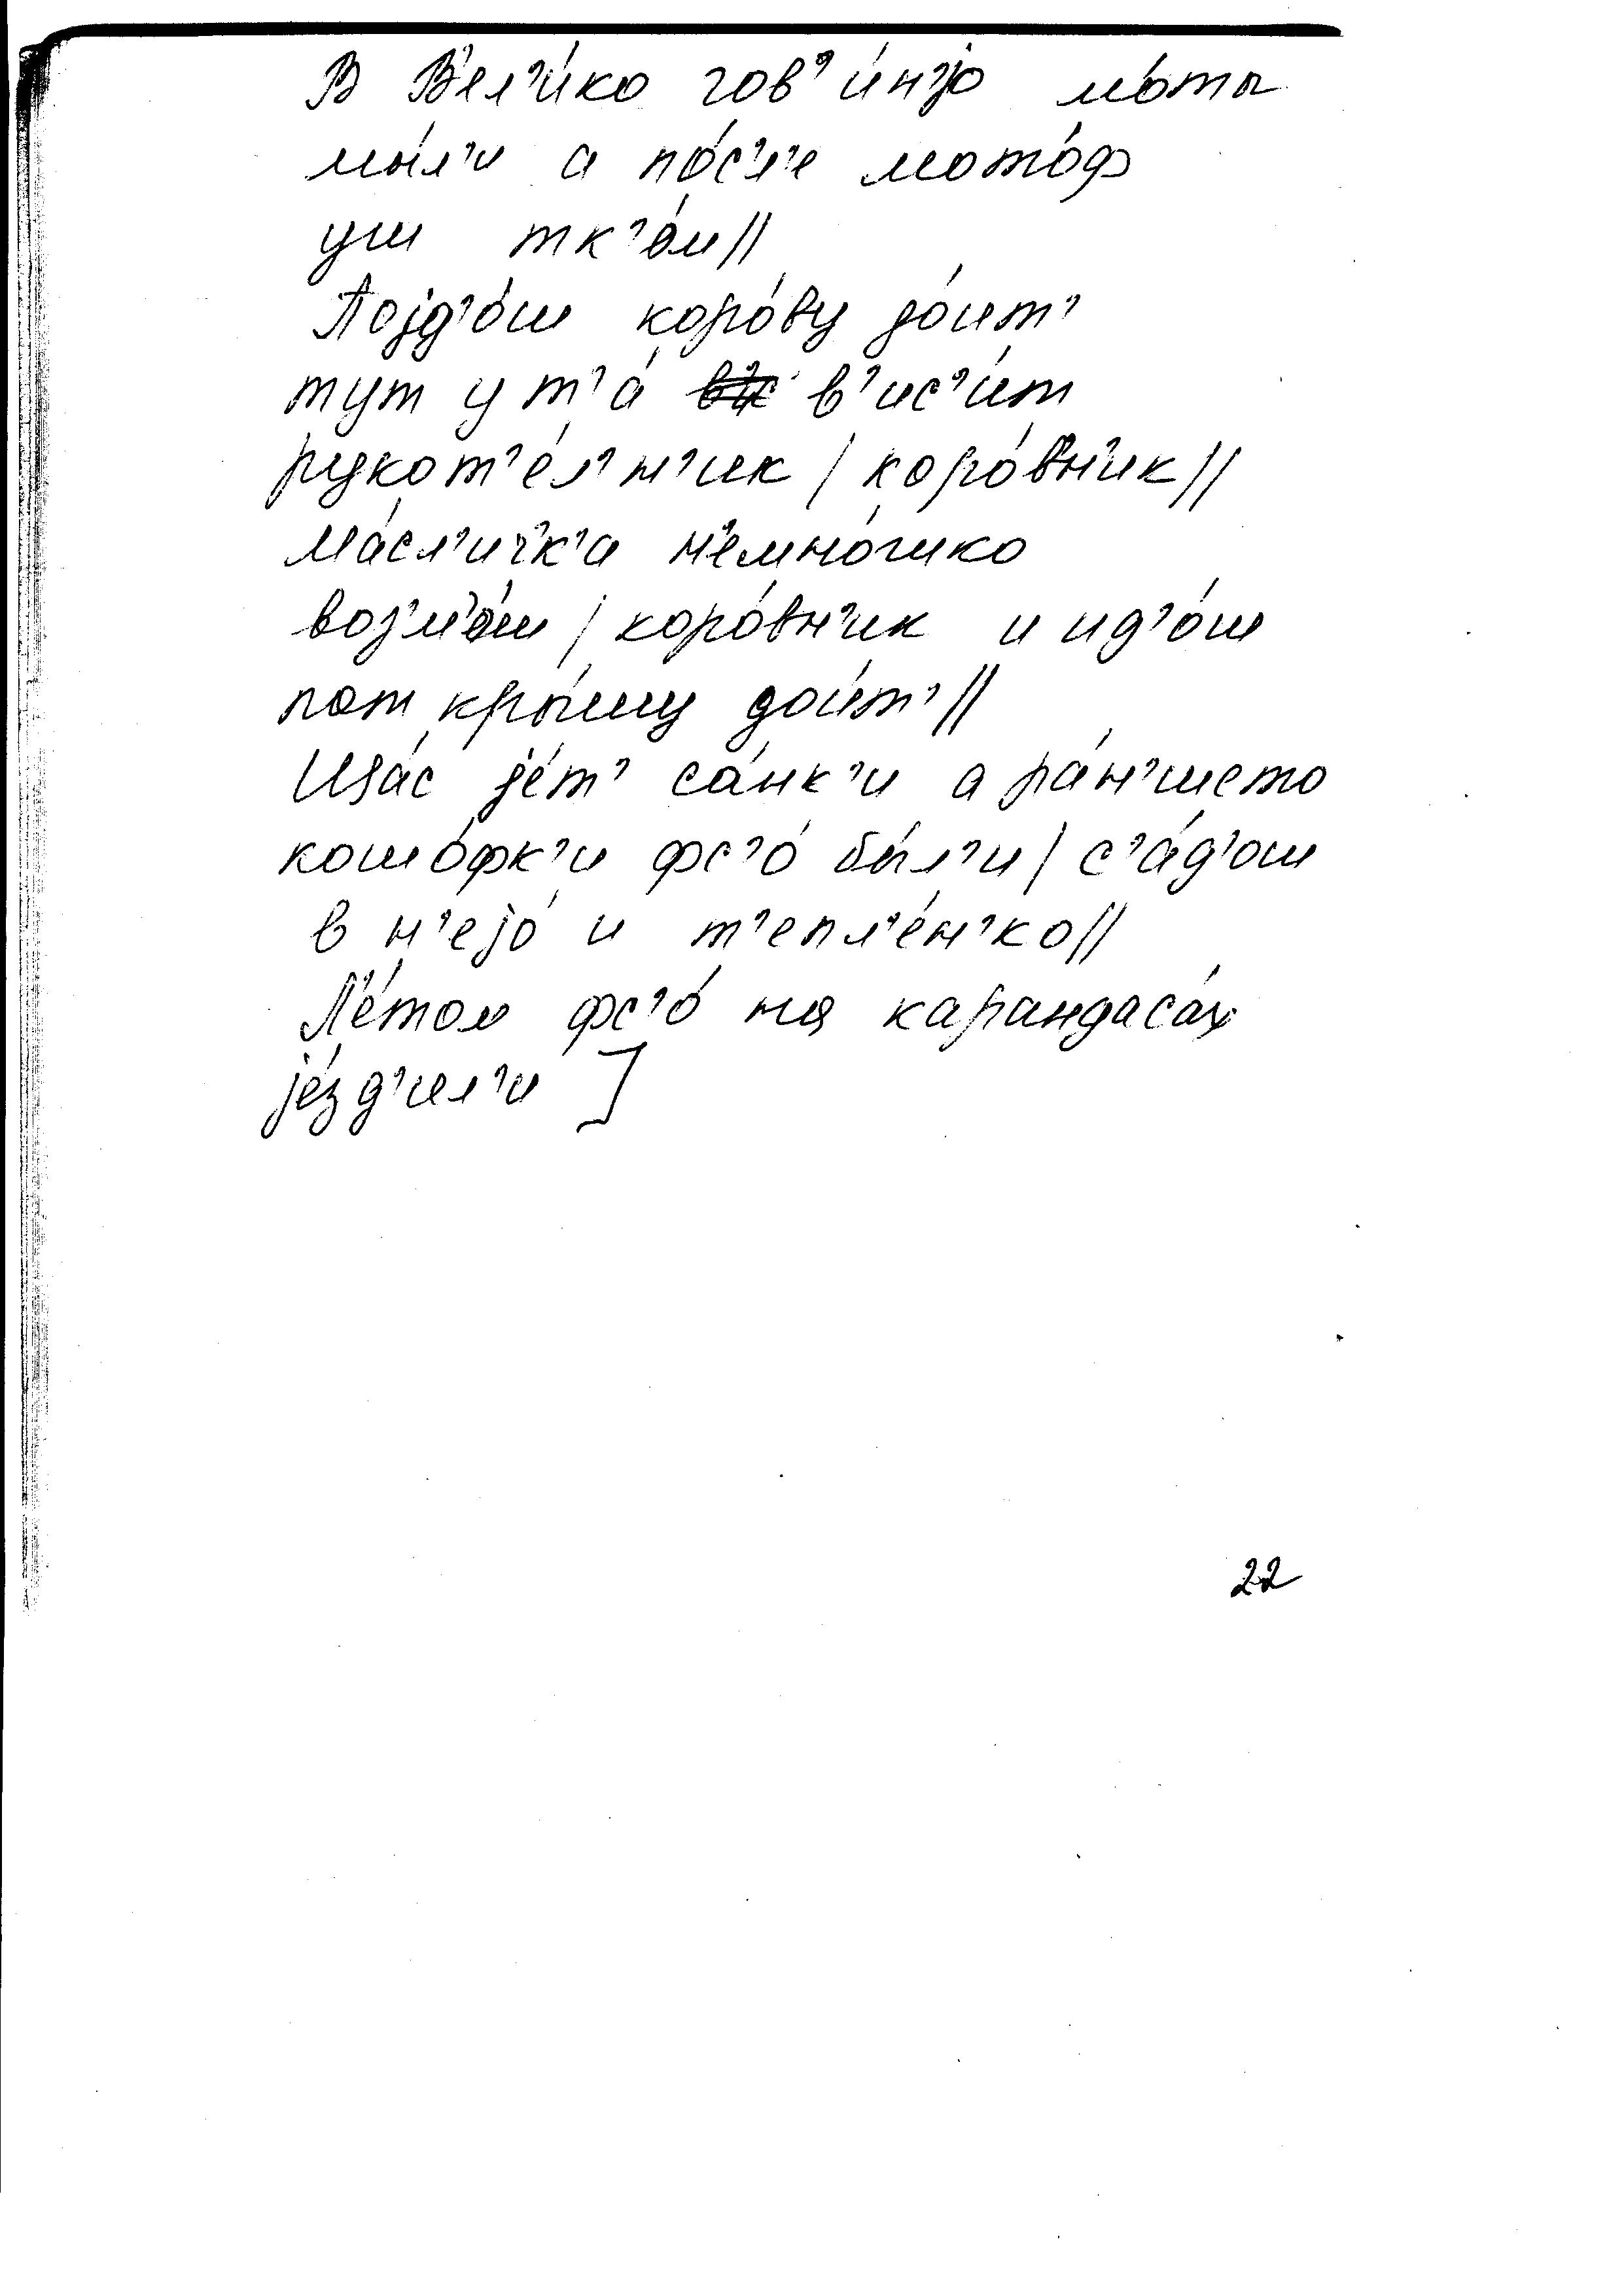 В В'ел'и́ко гов'и́нjо мо́ты
мы́л'и а по́с'л'е мото́ф
уш тк'о́м//
Поjд'о́ш коро́ву до́ит'
тут у т'а́ в'ис'и́т
рукот'е́л'н'ик / коро́вн'ик//
Ма́сл'ичк'а н'емно́шко
воз'м'о́ш / коро́вн'ик и ид'о́ш
пот кры́шу дои́т'//
Ща́с jе́т' са́нк'и а ра́н'шето
кошо́фк'и фс'о́ бы́л'и / с'а́д'ош
в н'еjо́ и т'епл'е́н'ко//
Л'е́том фс'о́ на карандаса́х
jе́зд'ил'и ]
22